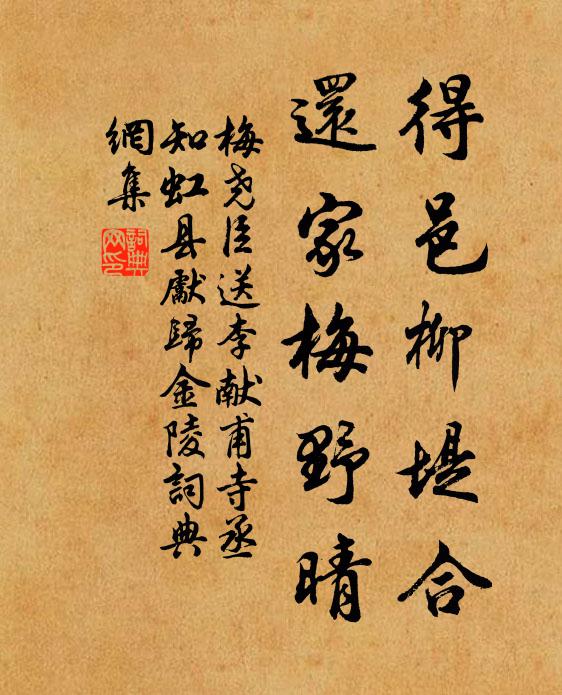 得邑柳堤合
還家梅野晴
梅尧臣送李献甫寺丞
知虹县獻歸金陵詞典
網集
詞典網印